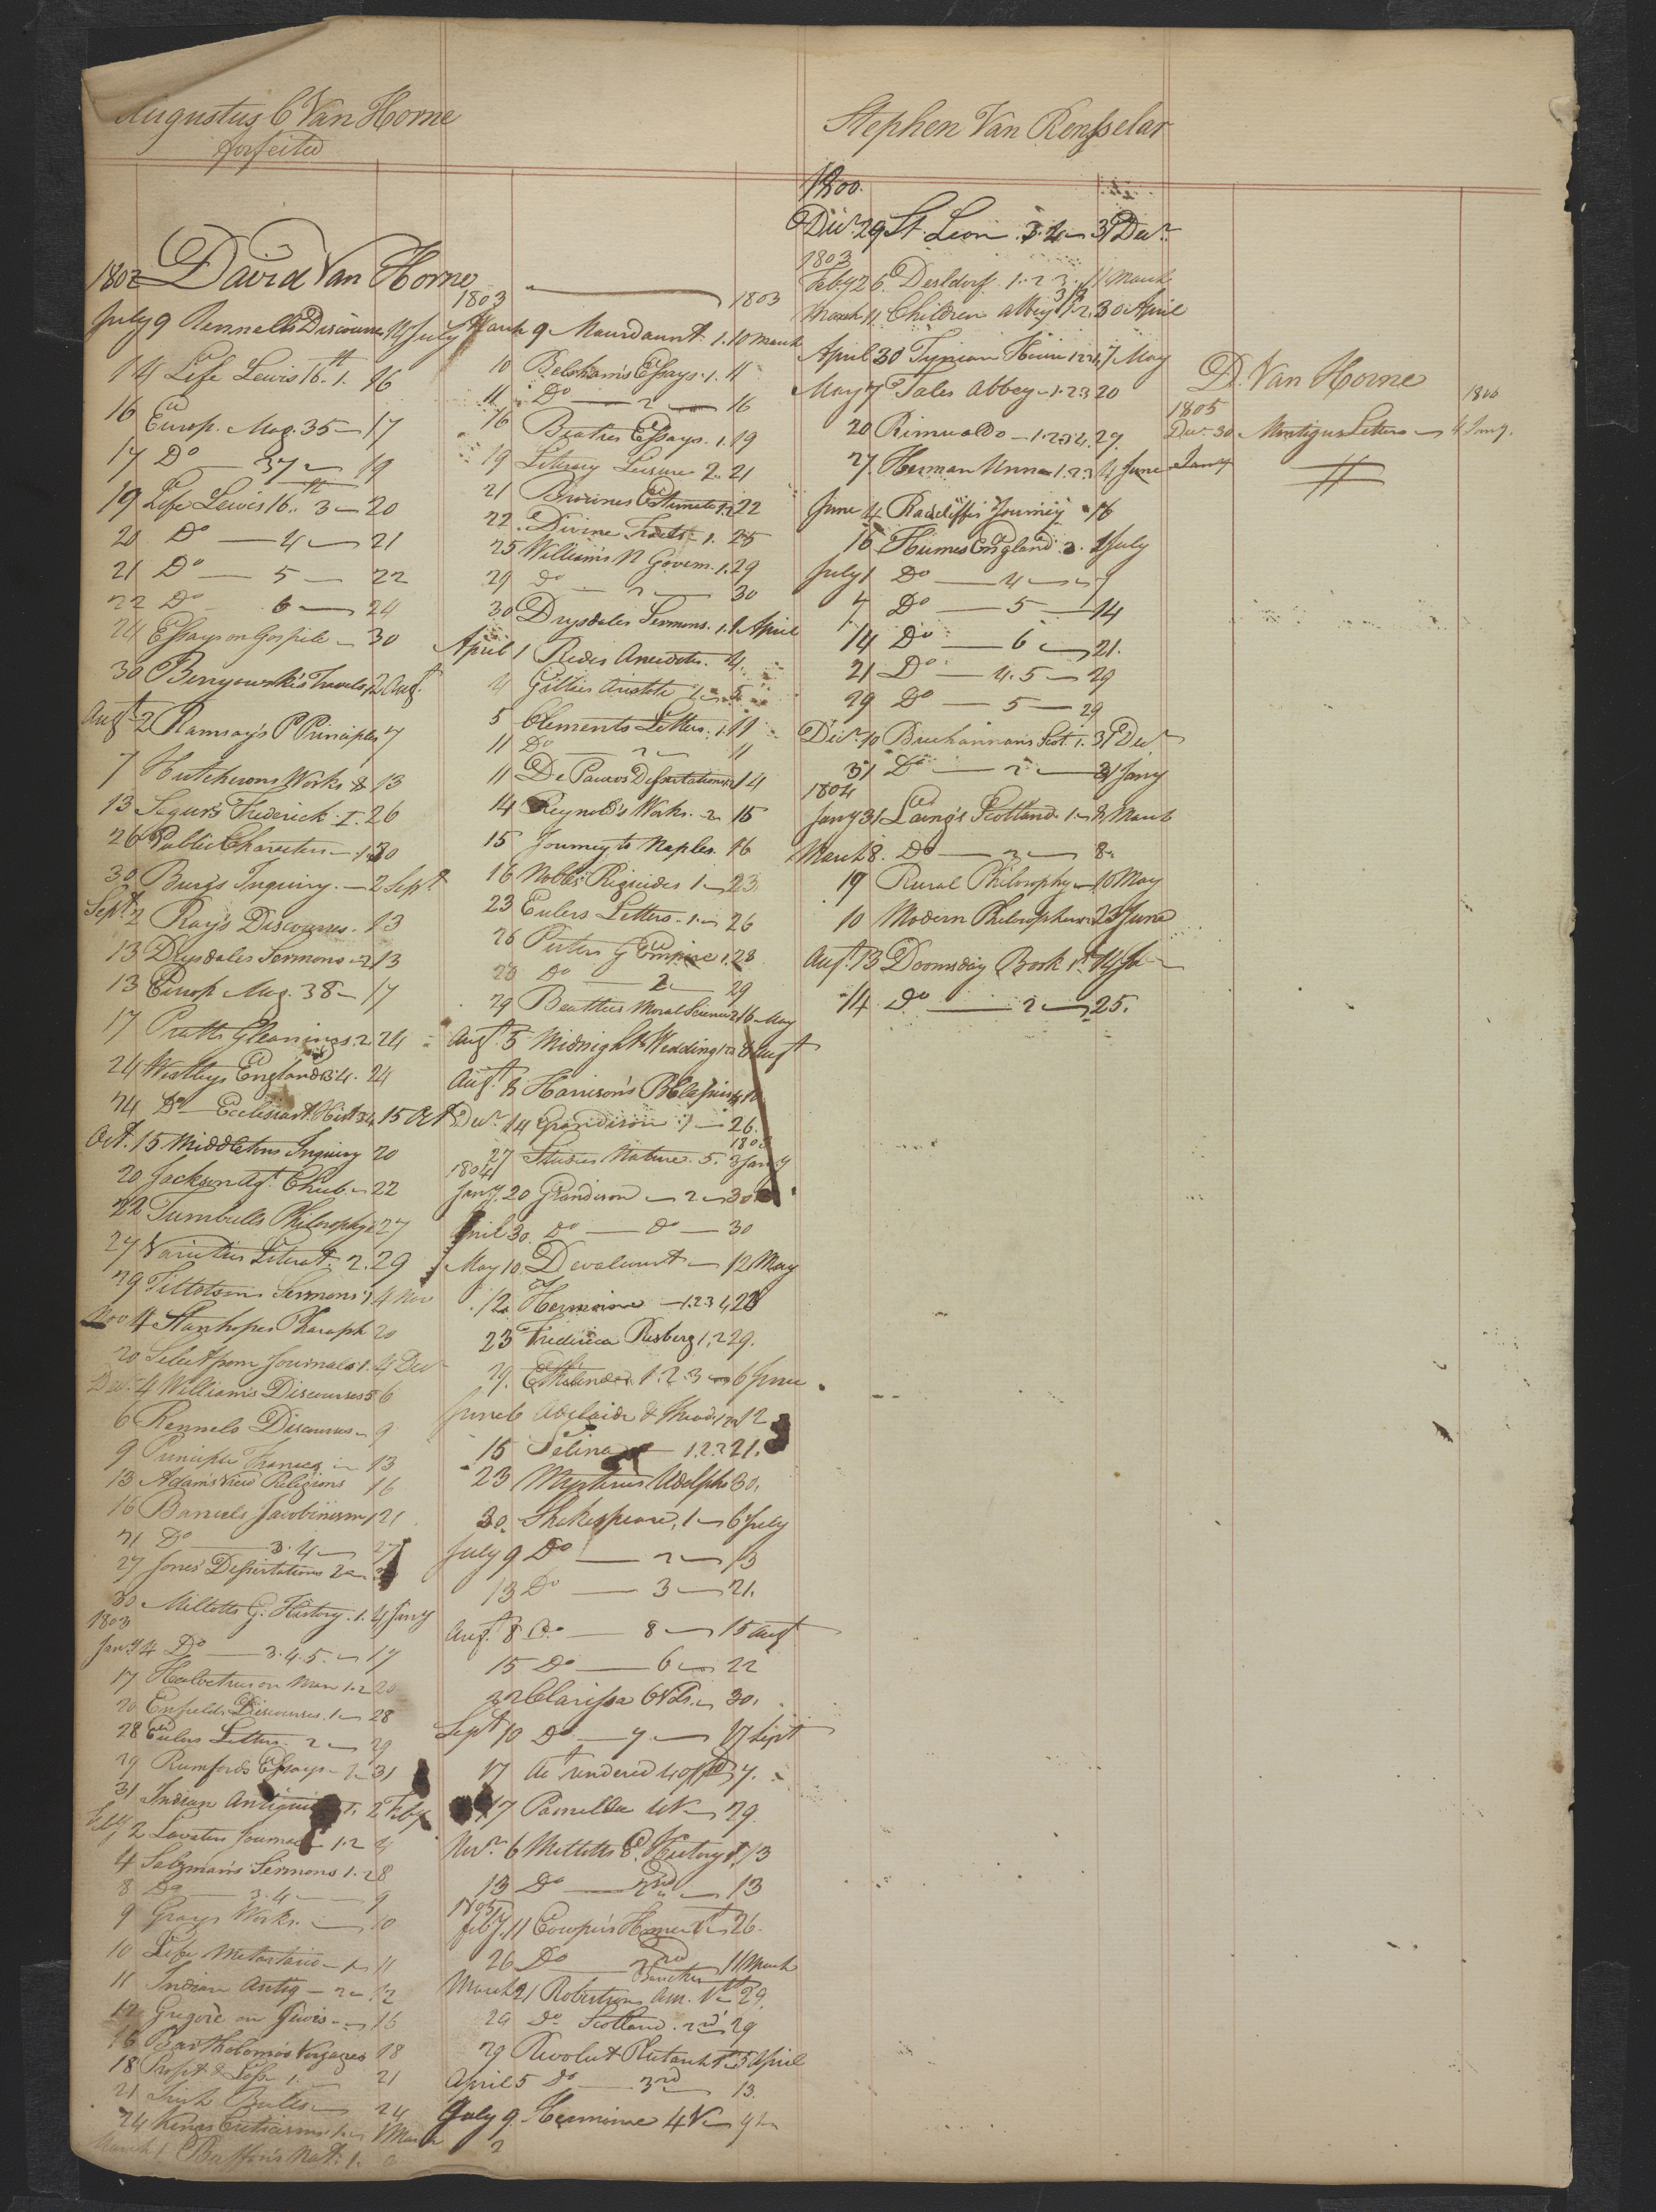 Augustus C Van Horne
forfeited
David Van Horne
1802
July 9 Rennells Discourses 14 July
14 Life Lewis 16th 1. 16
16 Europ. Mag. 35 17
17 Do 37 19
19 Life Lewis 16th 3 20
20 Do 4 21
21 Do 5 22
22 Do 6 24
24 Essays on Gospels 30
30 Benyowski's Travels 2 Augt
Augt 2 Ramsay's P Principles 7
7 Hutchesons Works 13
13 Segurs Frederick 1. 26
26 Public Characters 30
30 Burgs Inquiry 2 Sept
Sept 2 Rays Discourses 13
13 Drysdales Sermons 2 13
13 Europ Mag. 38 17
17 Pratts Gleanings 2 24
24 Westleys England 3.4. 24
24 Do Ecclesiast. Hist 3.4 15 Oct
Oct. 15 Middletons Inquiry 20
20 Jackson agt Chub 22
22 Turnbulls Philosophy 27
27 Varieties Literat. 2. 29
29 Tillotsons Sermons 1 4 Nov
Nov 4 Stanhopes Paraph 20
20 Select from Journals 1. 4 Decr
Decr 4 Williams Discourses 6
6 Rennels Discourses 9
9 Principle 13
13 Adams View Religions 16
16 Barruels Jacobinism 1 21
21 Do 3.4 27
27 Jones Dissertations 2
30 Millotts G. History. 1. 4 Jany
1803
Jany 4 Do 3.4.5. 17
17 Healvetius on Man 1.2 20
20 Enfields Discourses. 1 28
28 Eulers Letters 2 29
29 Rumfords Essays 1 31
31 Indian 1. 2 Feby
Feby 2 Lavaters Journal 1.2 4
4 Salzmans Sermons 1.2 8
8 Do 3.4 9
9 Grays Works. 10
10 Life Metastasio 1 11
11 Indian Antiq 2 12
12 Gregoire on Jews 16
16 Bartholomos Voyages 18
18 Profit & Loss 1. 21
21 Irish Bulls 24
24 Kings Criticisms 1 1 March
March 1 Buffons Nat. 1.
1803 1803
March 9 Mourdaunt 1. 10 March
10 Belshams Essays. 1. 11
11 Do 2 16
16 Beatties Essays. 1. 19
19 Literary Leisure 2. 21
21 Browns Estimate 1.2 22
22. Divine Tracts 1. 25
25 Williams N Govern. 1. 29
29 Do 2 30
30 Drysdales Sermons. 1. 1 April
April 1 Redes Anecdotes. 4
4 Gillies Aristotle 1 5
5 Clements Letters. 1. 11
11 Do 2 11
11 De Pauws Dissertations 14
14 Reynolds Works. 2 15
15 Journey to Naples. 16
16 Nobles Regicides 1 23
23 Eulers Letters. 1 26
26 Peters G Empire 1. 28
28 Do 2 29
29 Beatties Moral Science 2 16 May
Augt 5 Midnight Wedding 1.2 8 Augt
Augt 8 Harrison's
Decr 14 Grandison 1 26.
27 Studies Nature. 5. 3 Jany
1804
Jany. 20 Grandison 2 30
April 30. Do Do 30
May 10. Devalcourt 12 May
12 Hermione 1.2.3.4 23
23 Frederica Risberg 1.2 29.
29. Ethelinde 1.2.3 6 June
June 6 Adelaide & 12
15 Selina 1.2.3 21.
23 Mysteries Udolpho 30.
30. Shakespeare, 1 6 July
July 9 Do 2 13
13 Do 3 21.
Augt. 8 Do 8 15 Augt
15 Do 6 22
22 Clarissa 6 Vols. 30.
Sept 10 Do 7 17 Sept
17 Act rendered
17 Pamella 4V 29.
Novr. 6 Millotts E. History 1. 13
13 Do 2nd 13
1805
Feby. 11 Cowpers Homer 1st 26.
26 Do 2nd 11 March
March 21 Robertsons Am. 1st 29.
29 Do Scotland. 2nd 29
29 Revolut Plutarch 1st 5 April
April 5 Do 3rd 13.
July 9. Hermione 4V
Stephen Van Rensselar
1800.
Decr 29 St. Leon 3.4 31 Decr
1803
Feby 26 Desldorf 1.2.3. 11 March
March 11 Children Abbey 1.2. 30 April
April 30 Tynian 7 May
May 7 Tales Abbey 1.2.3 20
20 Rimualdo 1.2.3.4. 27.
27 Herman Unna 1.2.3 4 June
June 4 Radcliffes Journey 16
16 Humes England 3. 1 July
July 1 Do 4 7
7 Do 5 14
14 Do 6 21.
21 Do 4.5 29
29 Do 5 29
Decr. 10 Buchannans Scot. 1. 31 Decr
31 Do 2 31 Jany
1804
Jany 31 Laing's Scotland 1 8 March
March 8. Do 2 8
19 Rural Philosophy 10 May
10 Modern Philosophers 23 June
Augt. 13 Doomsday Book 1st 14
14 Do 2 25.
D. Van Horne
1805 1806
Decr 30 Montigus Letters 4 Jany.
Jany